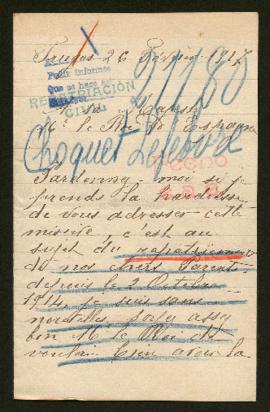 Fougas 26 Février 1917
Pedir informes
que se hace
REPATRIACIÓN
CIVIL
91780
A Sa Majesté
M. le Roi d'Espagne
Choquet Lefebvre
Pardonnez-moi si je
prends la hardiesse
de vous adresser cette
missive, c'est au
sujet du rapatriement
de nos chers Parents
depuis le 2 Octobre
1914, je suis sans
nouvelles, soyez assez
bon M. le Roi de
vouloir bien avoir la